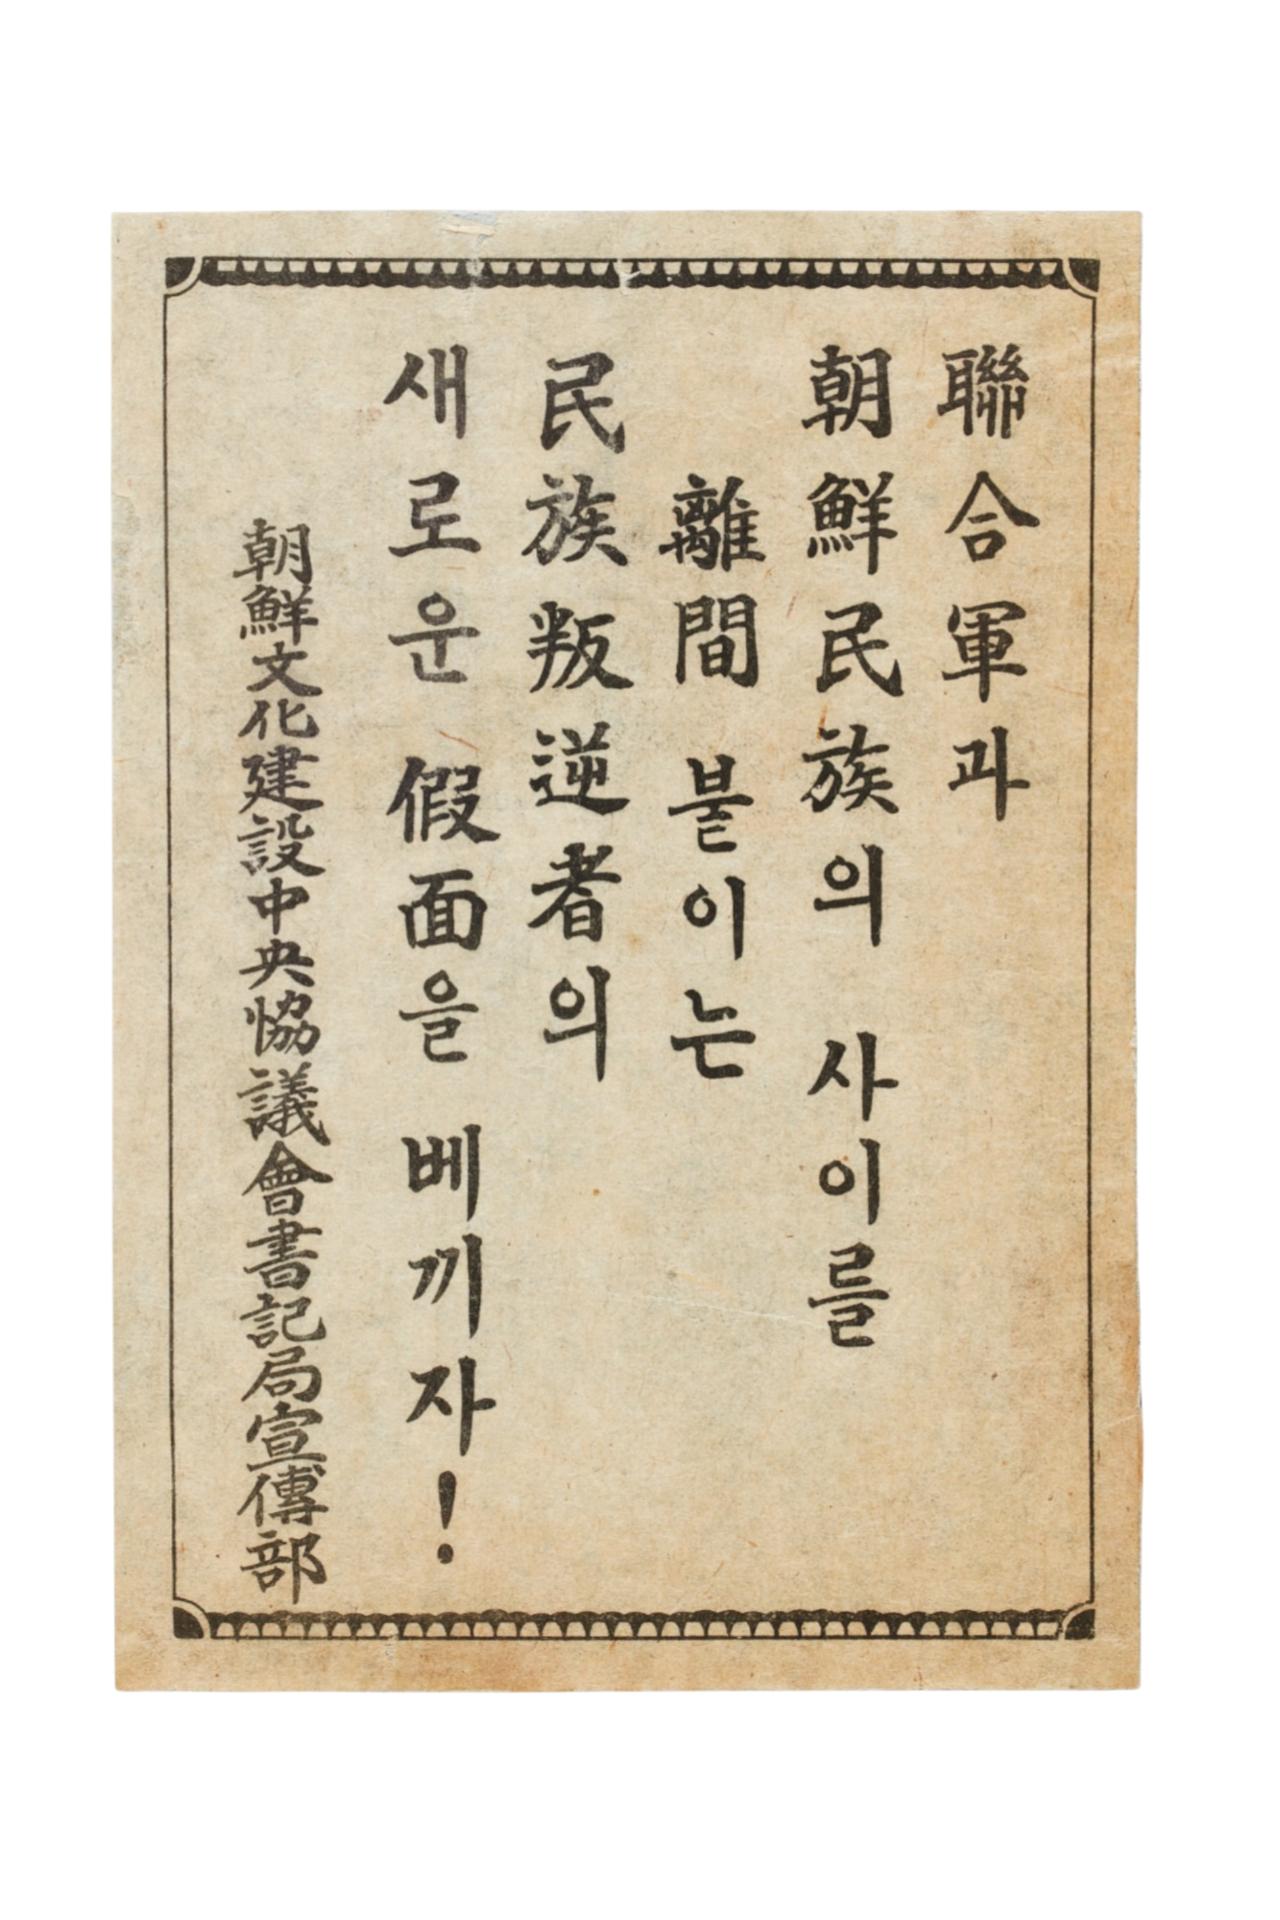 聯合軍과
朝鮮民族의 사이를
離間 붙이는
民族叛逆者의
새로운 假面을 베끼자!
朝鮮文化建設中央協議會書記局宣傳部